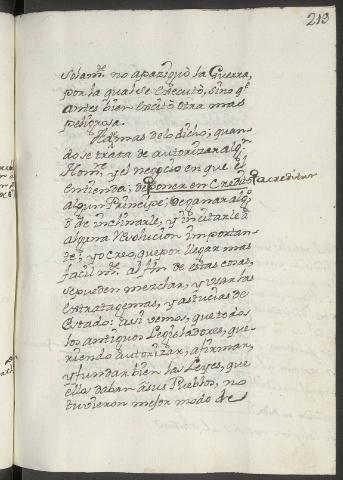 213
Solam.te no apaziguò la Guerra,
por la qual se executò, sino q.e
antes bien encitò otra mas
peligrosa.
Hà, mas de lo dicho, quan-
do se trata de autorizar alg.n
Hom.e, y el negocio en que el
entienda; de poner en Credito acreditar
algun Principe; de ganar alg.o
ò de inclinarle, y incitarle à
alguna revolucion importan-
te; yo creo, que por llegar mas
facilm.te al fin de estas cosas,
se pueden mezclar, y usar las
estratagemas, y astucias de
Estado: assi vemos, que todos
los antiguos Legisladores, que-
riendo autorizar, afirmar,
y fundar bien las Leyes, que
ellos daban à sus Pueblos, no
tuvieron mejor modo de